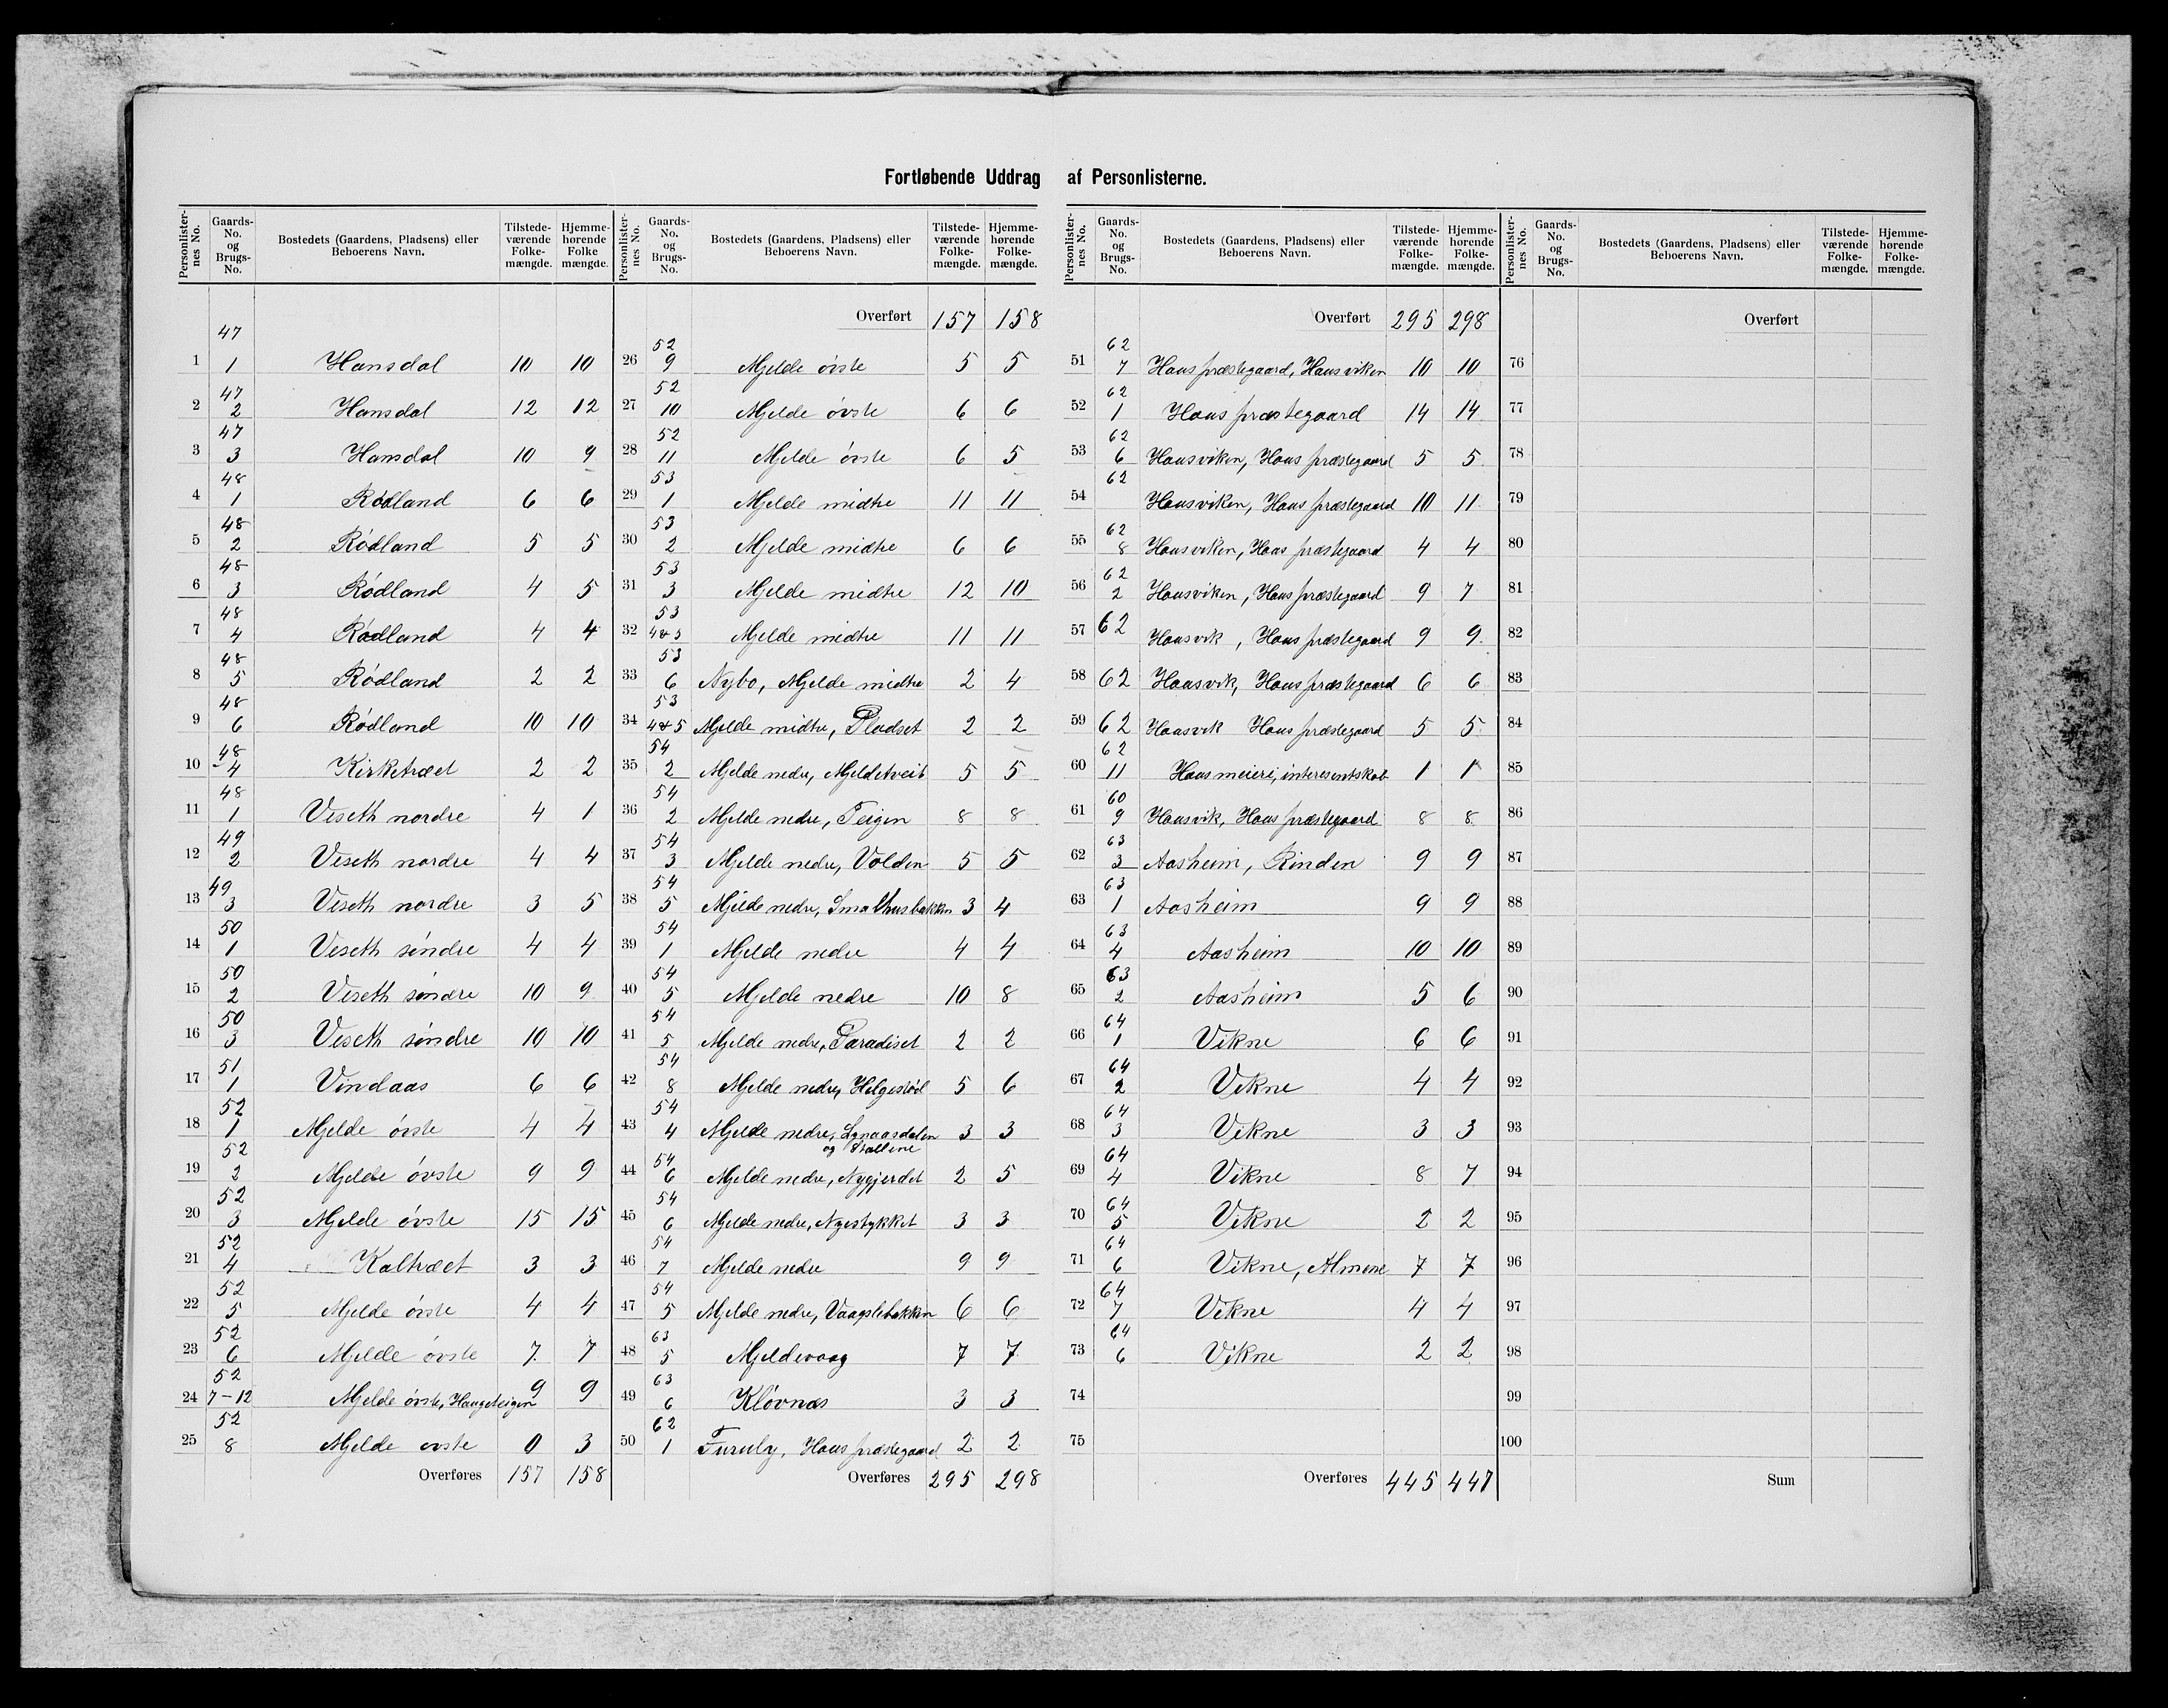 Fortløbende Uddrag af Personlisterne.
Personlister-nes No. | Gaards-No. og Brugs-No. | Bostedets (Gaardens, Pladsens) eller Beboerens Navn. | Tilstede-værende Folke-mængde. | Hjemme-hørende Folke mængde.
47
1 | 1 | Hansdal | 10 | 10
2 | 47 2 | Hansdal | 12 | 12
3 | 47 3 | Hansdal | 10 | 9
4 | 48 1 | Rødland | 6 | 6
5 | 48 2 | Rødland | 5 | 5
6 | 48 3 | Rødland | 4 | 5
7 | 48 4 | Rødland | 4 | 4
8 | 48 5 | Rødland | 2 | 2
9 | 48 6 | Rødland | 10 | 10
10 | 48 4 | Kirketræet | 2 | 2
11 | 48 1 | Viseth nordre | 4 | 1
12 | 49 2 | Viseth nordre | 4 | 4
13 | 49 3 | Viseth nordre | 3 | 5
14 | 50 1 | Viseth søndre | 4 | 4
15 | 50 2 | Viseth søndre | 10 | 9
16 | 50 3 | Viseth søndre | 10 | 10
17 | 51 1 | Vindaas | 6 | 6
18 | 52 1 | Mjelde øvste | 4 | 4
19 | 52 2 | Mjelde øvste | 9 | 9
20 | 52 3 | Mjelde øvste | 15 | 15
21 | 52 4 | Kaltræet | 3 | 3
22 | 52 5 | Mjelde øvste | 4 | 4
23 | 52 6 | Mjelde øvste | 7 | 7
24 | 52 7-12 | Mjelde øvste, Haugeteigen | 9 | 9
25 | 52 8 | Mjelde øvste | 0 | 3
Overføres | 157 | 158
Personlister-nes No. | Gaards-No. og Brugs-No. | Bostedets (Gaardens, Pladsens) eller Beboerens Navn. | Tilstede-værende Folke-mængde. | Hjemme-hørende Folke-mængde.
Overført | 157 | 158
26 | 52 9 | Mjelde øvste | 5 | 5
27 | 52 10 | Mjelde øvste | 6 | 6
28 | 52 11 | Mjelde øvste | 6 | 5
29 | 53 1 | Mjelde midtre | 11 | 11
30 | 53 2 | Mjelde midtre | 6 | 6
31 | 53 3 | Mjelde midtre | 12 | 10
32 | 53 4&5 | Mjelde midtre | 11 | 11
33 | 53 6 | Nybo, Mjelde midtre | 2 | 4
34 | 53 4&5 | Mjelde midtre, Pladset | 2 | 2
35 | 54 2 | Mjelde nedre, Mjeldetveit | 5 | 5
36 | 54 2 | Mjelde nedre, Teigen | 8 | 8
37 | 54 3 | Mjelde nedre, Volden | 5 | 5
38 | 54 5 | Mjelde nedre, Smalhusbakken | 3 | 4
39 | 54 1 | Mjelde nedre | 4 | 4
40 | 54 5 | Mjelde nedre | 10 | 8
41 | 54 5 | Mjelde nedre, Paradiset | 2 | 2
42 | 54 8 | Mjelde nedre, Helgestød | 5 | 6
43 | 54 4 | Mjelde nedre, | 3 | 3
44 | 54 6 | Mjelde nedre, Nygjerdet | 2 | 5
45 | 54 6 | Mjelde nedre, Nyestykket | 3 | 3
46 | 54 7 | Mjelde nedre | 9 | 9
47 | 54 5 | Mjelde nedre, Vaagslebakken | 6 | 6
48 | 63 5 | Mjeldevaag | 7 | 7
49 | 63 6 | Kløvnæs | 3 | 3
50 | 62 1 | Furuly, Haus præstegaard | 2 | 2
Overføres | 295 | 298
Personlister-nes No. | Gaards-No. og Brugs-No. | Bostedets (Gaardens, Pladsens) eller Beboerens Navn. | Tilstede-værende Folke-mængde. | Hjemme-hørende Folke-mængde.
Overført | 295 | 298
51 | 62 7 | Haus præstegaard, Hausviken | 10 | 10
52 | 62 1 | Haus præstegaard | 14 | 14
53 | 62 6 | Hausviken, Haus præstegaard | 5 | 5
54 | 62 | Hausviken, Haus præstegaard | 10 | 11
55 | 62 8 | Hausviken, Haus præstegaard | 4 | 4
56 | 62 2 | Hausviken, Haus præstegaard | 9 | 7
57 | 62 | Hausvik, Haus præstegaard | 9 | 9
58 | 62 | Hausvik, Haus præstegaard | 6 | 6
59 | 62 | Hausvik Haus præstegaard | 5 | 5
60 | 62 11 | Haus meieri, interesentskab | 1 | 1
61 | 60 9 | Hausvik, Haus præstegaard | 8 | 8
62 | 63 3 | Aasheim, Rinden | 9 | 9
63 | 63 1 | Aasheim | 9 | 9
64 | 63 4 | Aasheim | 10 | 10
65 | 63 2 | Aasheim | 5 | 6
66 | 64 1 | Vikne | 6 | 6
67 | 64 2 | Vikne | 4 | 4
68 | 64 3 | Vikne | 3 | 3
69 | 64 4 | Vikne | 8 | 7
70 | 64 5 | Vikne | 2 | 2
71 | 64 6 | Vikne, Almene | 7 | 7
72 | 64 7 | Vikne | 4 | 4
73 | 64 6 | Vikne | 2 | 2
74
75
Overføres | 445 | 447
Personlister-nes No. | Gaards-No. og Brugs-No. | Bostedets (Gaardens, Pladsens) eller Beboerens Navn. | Tilstede-værende Folke-mængde. | Hjemme-hørende Folke-mængde.
Overført
76
77
78
79
80
81
82
83
84
85
86
87
88
89
90
91
92
93
94
95
96
97
98
99
100
Sum